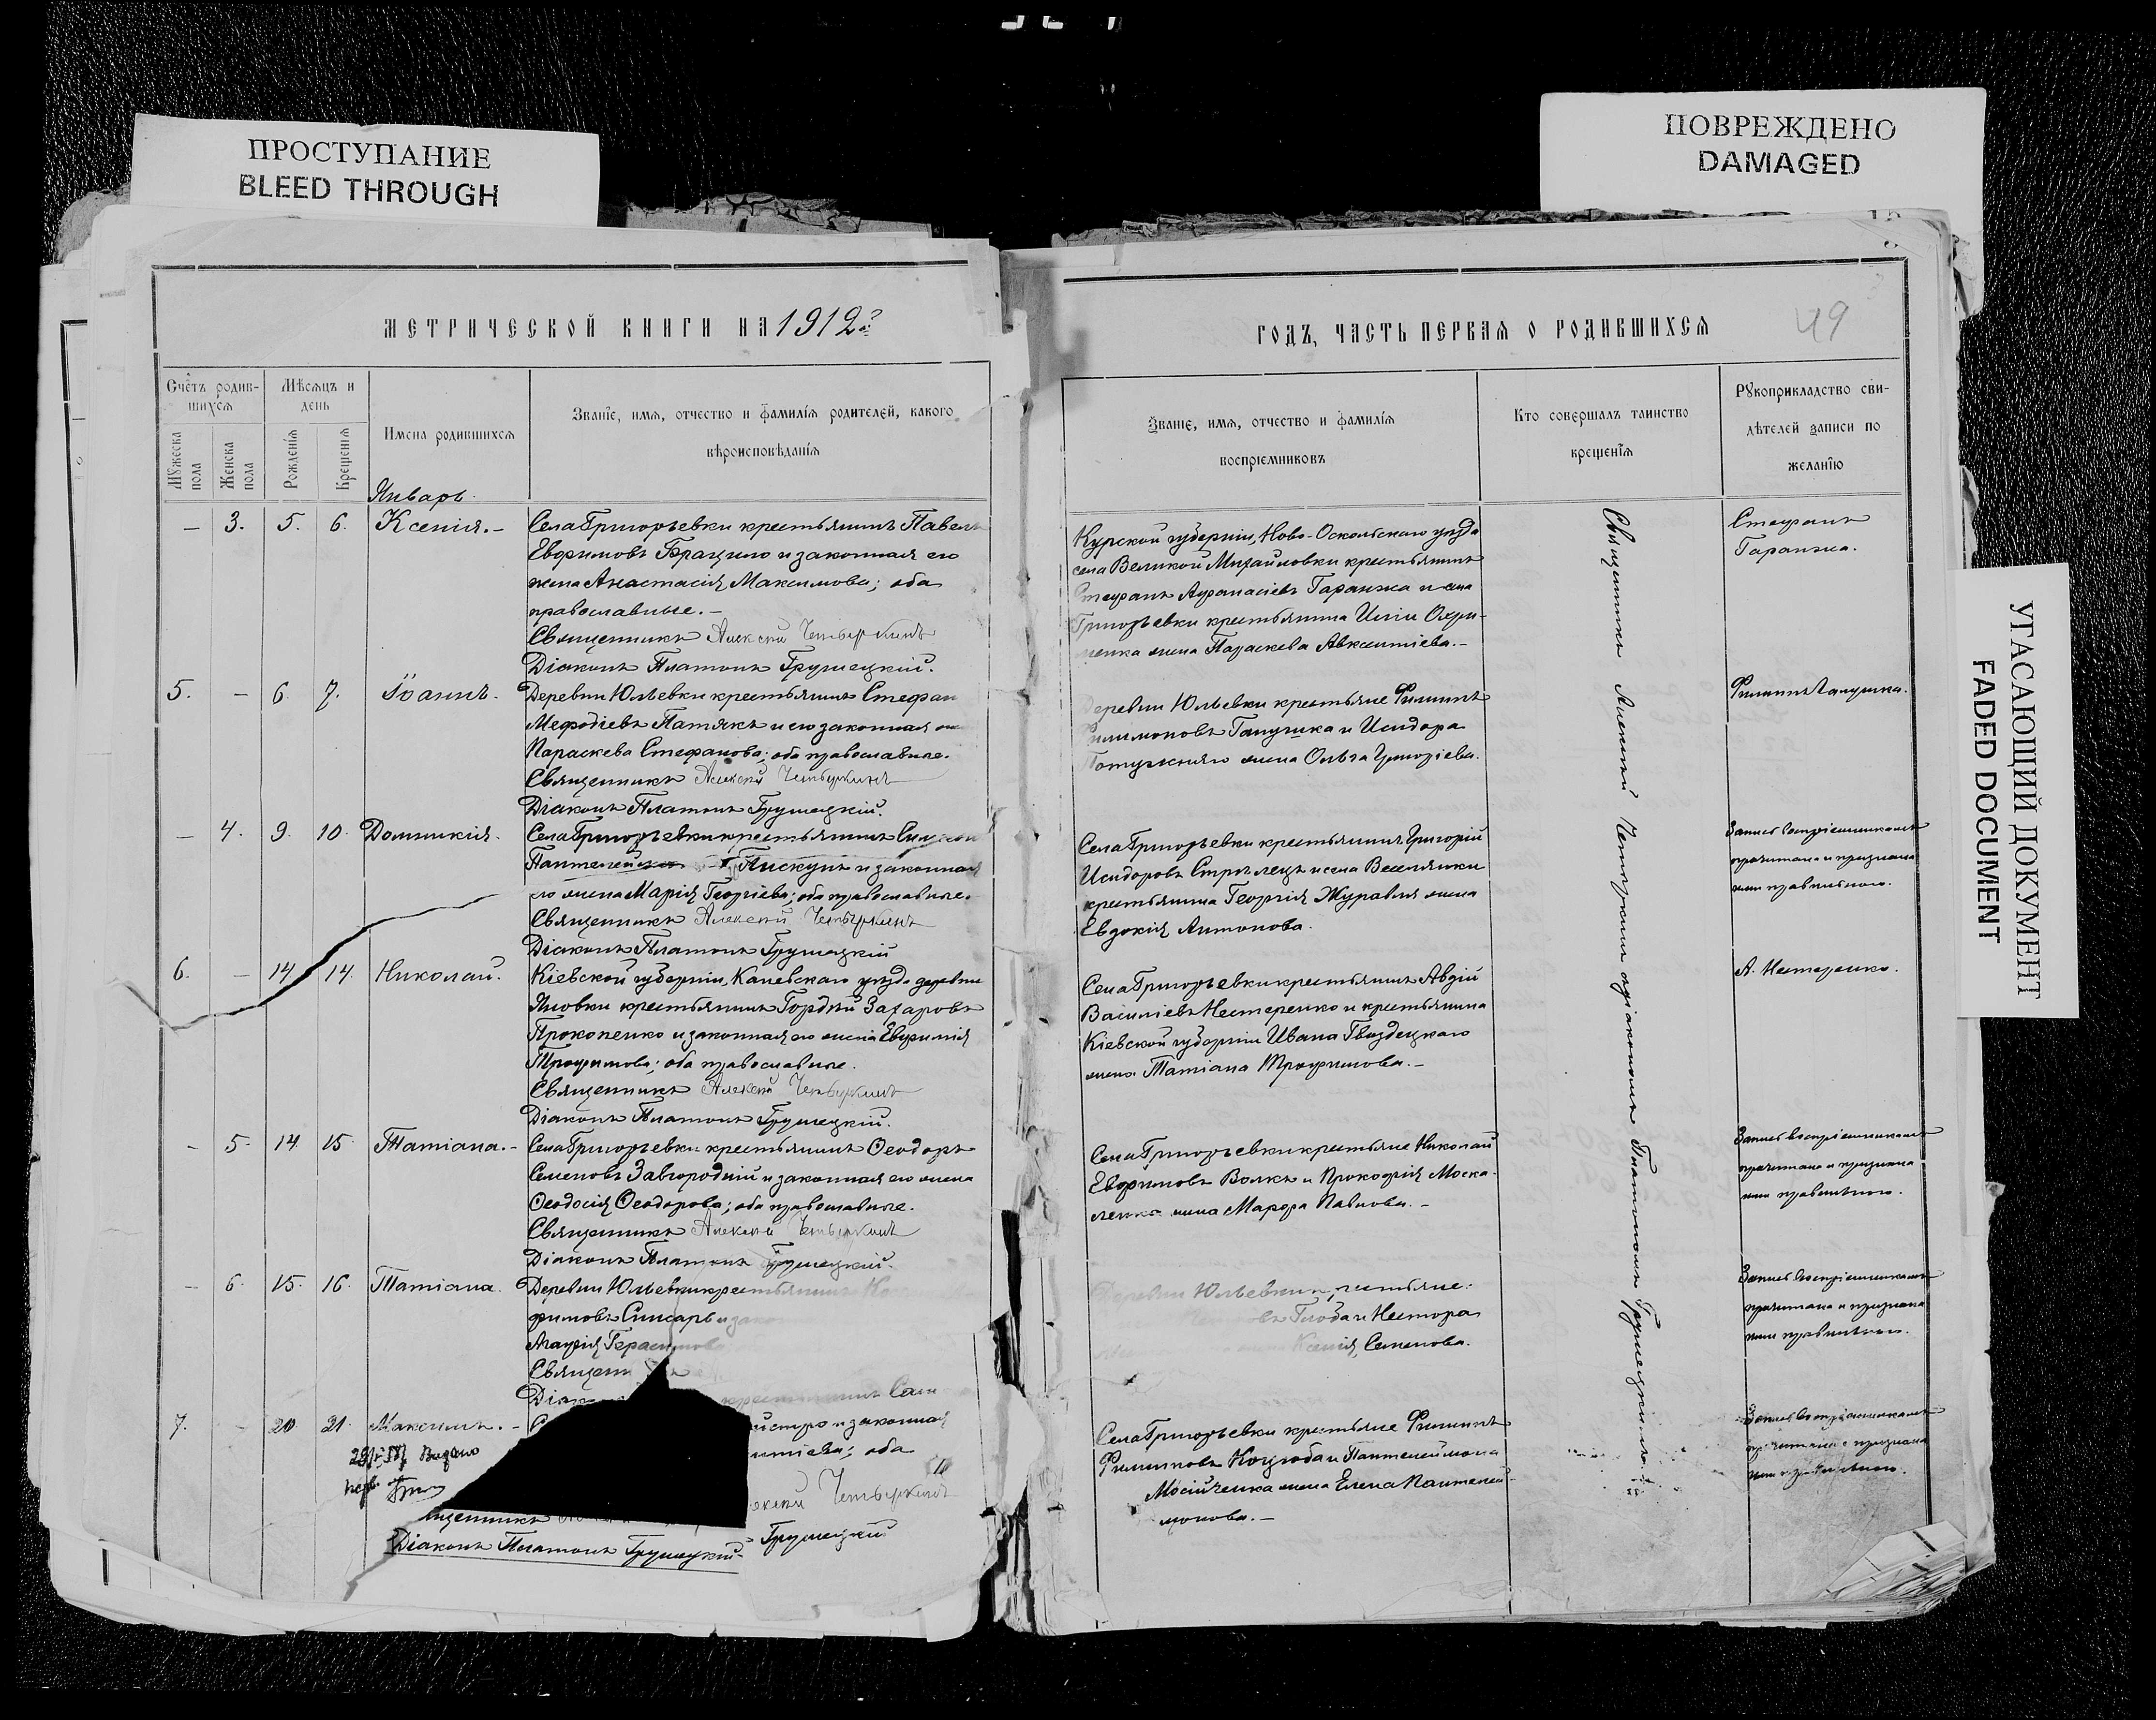 ПРОСТУПАНИЕ
BLEED THROUGH
ПОВРЕЖДЕНО
DAMAGED
УГАСАЮЩИЙ ДОКУМЕНТ
FADED DOCUMENT
МЕТРИЧЕСКОЙ КНИГИ НА 1912 г.
Счетъ родив-
шихся
Мѣсяцъ и
день
Мужеска
пола
Женска
пола
Рожденія
Крещенія
Имена родившихся
Званіе, имя, отчество и фамилія родителей, какого
вѣроисповѣданія
Январь
— 3. 5. 6. Ксенія. — Села Григорьевки крестьянинъ Павелъ
Евфимовъ и законная его
жена Анастасія Максимова; оба
православные. —
Священникъ Алексей Четыркинъ
Діаконъ Платонъ Грушецкій.
5. — 6. 7. Іоаннъ. Деревни Юльевки крестьянинъ Стефан
Мефодіевъ Патякъ и его законная
Параскева Стефанова; оба православные.
Священникъ Алексей Четыркинъ
Діаконъ Платонъ Грушецкій.
— 4. 9. 10. Домникія. Села Григорьевки крестьянинъ
Пискунъ и законная
его жена Марія Георгіева; оба православные.
Священникъ Алексей Четыркинъ
Діаконъ Платонъ Грушецкій
6. — 14 14. Николай. Кіевской губерніи, Каневскаго уѣзда деревни
Яновки крестьянинъ Гордѣй Захаровъ
Прокопенко и законная его жена Евфимія
Трофимова; оба православные.
Священникъ Алексей Четыркинъ
Діаконъ Платонъ Грушецкій.
— 5. 14 15. Татіана. — Села Григорьевки крестьянинъ Ѳеодоръ
Семеновъ Завгородній и законная его жена
Ѳеодосія Ѳеодорова; оба православные.
Священникъ Алексей Четыркинъ
Діаконъ Платонъ Грушецкій.
— 6. 15. 16. Татіана. Деревни Юльевки крестьянинъ
фимовъ Слисарь и зако
Агафія Герасимова
Священ
Діа
крестьянинъ
7. — 20 21. Максимъ. — и законная
оба
Выдано
Четыркинъ
щенникъ
Грушецкій
Діаконъ Платонъ Грушецкій
ГОДЪ, ЧАСТЬ ПЕРВАЯ О РОДИВШИХСЯ
49
Званіе, имя, отчество и фамилія
воспріемниковъ
Кто совершалъ таинство
крещенія
Рукоприкладство сви-
дѣтелей записи по
желанію
Курской губерніи, Ново-Оскольскаго уѣзда
села Великой Михайловки крестьянинъ
Стефанъ Афанасіевъ Гаранжа и села
Григорьевки крестьянина Иліи Охри-
менка жена Параскева Авксентіева. —
Деревни Юльевки крестьяне Филиппъ
Филимоновъ Галушка и Исидора
жена Ольга Григоріева.
Села Григорьевки крестьянинъ Григорій
Исидоровъ Стрѣлецъ и села Веселянки
крестьянина Георгія Журавля жена
Евдокія Антонова.
Села Григорьевки крестьянинъ Авдій
Василіевъ Нестеренко и крестьянина
Кіевской губерніи Ивана Гвоздецкаго
жена Татіана Трофимова. —
Села Григорьевки крестьяне Николай
Евфимовъ Волкъ и Прокофія Моска-
ленка жена Марфа Павлова. —
Деревни Юльевки крестьяне:
Глоба и Нестора
жена Ксенія Семенова.
Села Григорьевки крестьяне Филиппъ
Филипповъ Коцюба и Пантелеймона
Мосійченка жена Елена Пантелей-
монова. —
Священникъ Алексей Четыркинъ с діакономъ Платономъ Грушецкимъ
Стефанъ
Гаранжа.
Филиппъ Галушка.
Запись воспріемниками
прочитана и признана
ими правильною.
А. Нестеренко.
Запись воспріемниками
прочитана и признана
ими правильною.
Запись воспріемниками
прочитана и признана
ими правильною.
Запись воспріемниками
прочитана и признана
ими правильною.